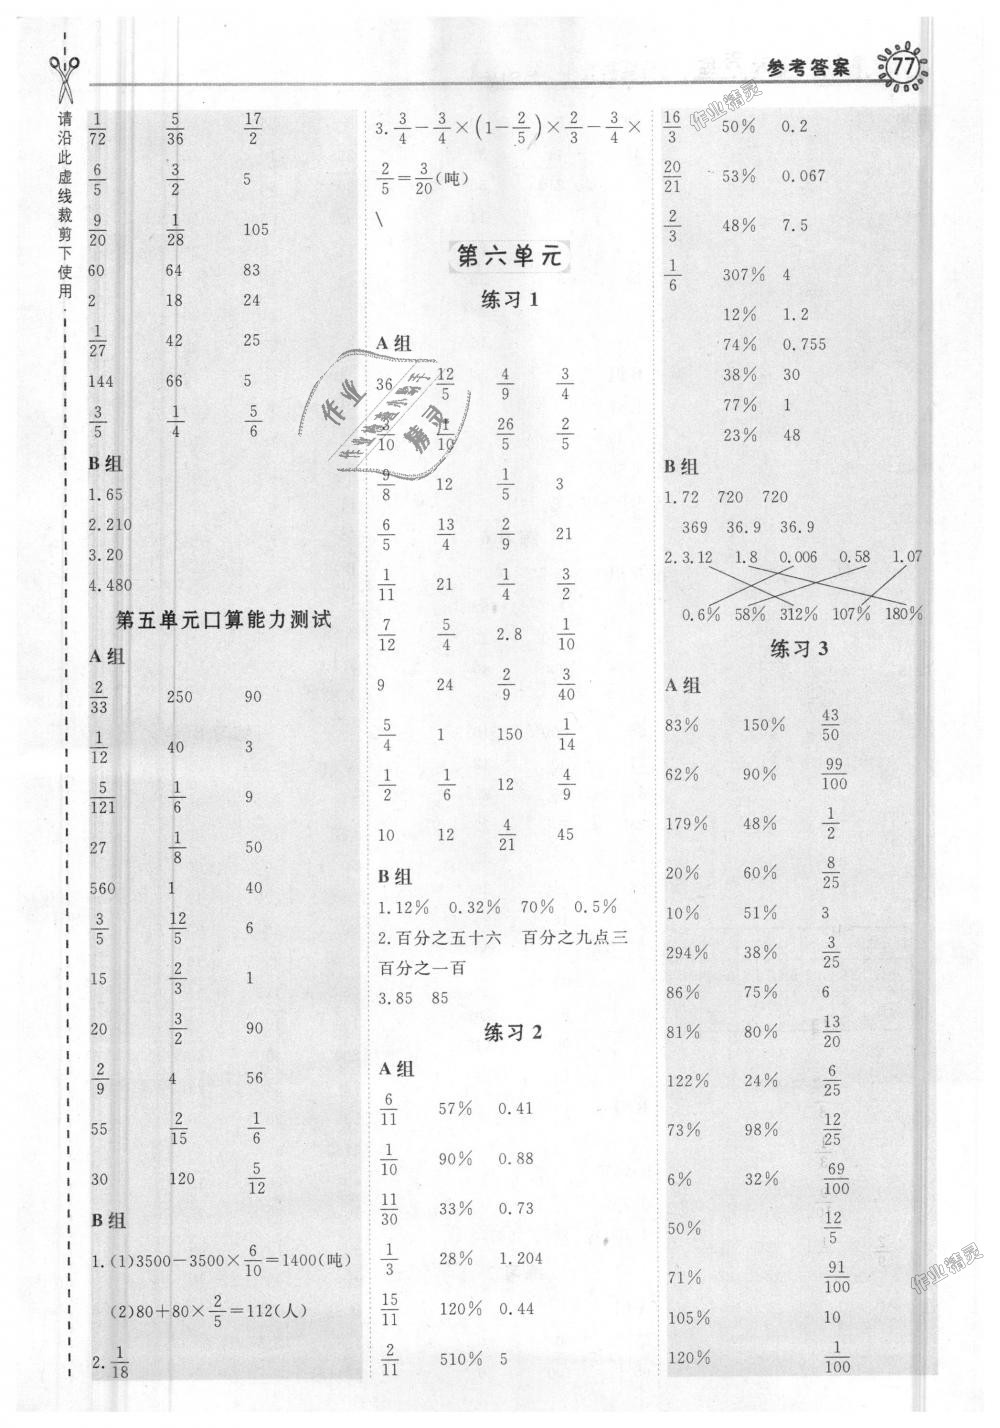 参考答案 77
请沿此虚线裁剪下使用
1/72 5/36 17/2
6/5 3/2 5
9/20 1/28 105
60 64 83
2 18 24
1/27 42 25
144 66 5
3/5 1/4 5/6
B组
1.65
2.210
3.20
4.480
第五单元口算能力测试
A组
2/33 250 90
1/12 40 3
5/121 1/6 9
27 1/8 50
560 1 40
3/5 12/5 6
15 2/3 1
20 3/2 90
2/9 4 56
55 2/15 1/6
30 120 5/12
B组
1.(1)3500－3500×6/10＝1400(吨)
(2)80＋80×2/5＝112(人)
2.1/18
3.3/4－3/4×(1－2/5)×2/3－3/4×
2/5＝3/20(吨)
\
第六单元
练习1
A组
36 12/5 4/9 3/4
3/10 1/10 26/5 2/5
9/8 12 1/5 3
6/5 13/4 2/9 21
1/11 21 1/4 3/2
7/12 5/4 2.8 1/10
9 24 2/9 3/40
5/4 1 150 1/14
1/2 1/6 12 4/9
10 12 4/21 45
B组
1.12% 0.32% 70% 0.5%
2.百分之五十六 百分之九点三
百分之一百
3.85 85
练习2
A组
6/11 57% 0.41
1/10 90% 0.88
11/30 33% 0.73
1/3 28% 1.204
15/11 120% 0.44
2/11 510% 5
16/3 50% 0.2
20/21 53% 0.067
2/3 48% 7.5
1/6 307% 4
12% 1.2
74% 0.755
38% 30
77% 1
23% 48
B组
1.72 720 720
369 36.9 36.9
2.3.12 1.8 0.006 0.58 1.07
0.6% 58% 312% 107% 180%
练习3
A组
83% 150% 43/50
62% 90% 99/100
179% 48% 1/2
20% 60% 8/25
10% 51% 3
294% 38% 3/25
86% 75% 6
81% 80% 13/20
122% 24% 6/25
73% 98% 12/25
6% 32% 69/100
50% 12/5
71% 91/100
105% 10
120% 1/100
作业精灵
作业精灵
作业
精灵